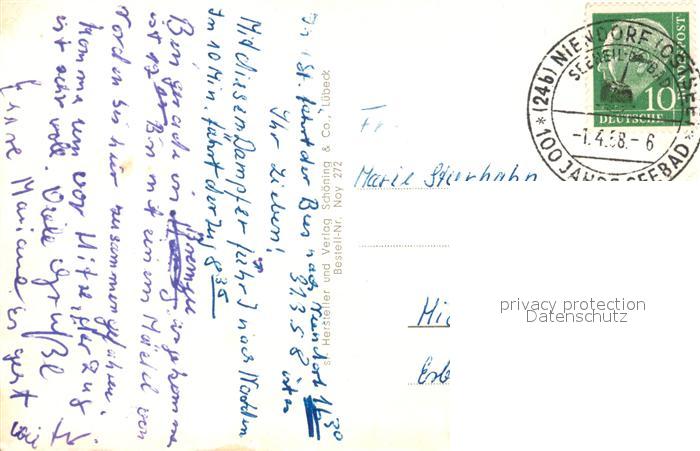 In 1 St. fährt der Bus nach Niendorf 16 30
31.3.58
Ihr Lieben!
Mit diesem Dampfer fährt nach Norden
In 10 Min. fährt der Zug 8 35
Bin gerade in Bremen angekommen
ist Bin mit einem Mädel von
Norden bis hier zusammen gefahren.
Komme um vor Hitze, der Zug
ist sehr voll. Viele Grüße
Eure Mariane
Hersteller und Verlag Schöning & Co., Lübeck
Bestell-Nr. Noy 272
Fr.
Marie Stierhahn
Hi
Erb
(24b) NIENDORF (OSTSEE)
SEEHEILBAD
-1.4.58.-6
100 JAHRE SEEBAD
10
DEUTSCHE
BUNDESPOST
privacy protection
Datenschutz